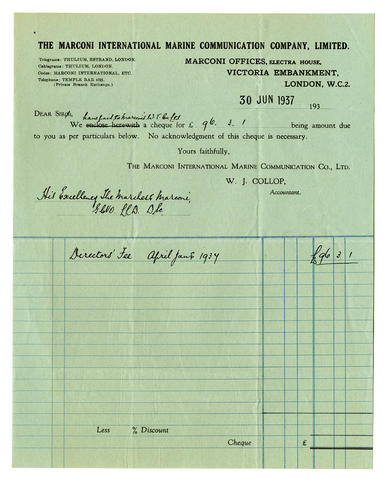 THE MARCONI INTERNATIONAL MARINE COMMUNICATION COMPANY, LIMITED.
Telegrams: THULIUM, ESTRAND, LONDON.
Cablegrams: THULIUM, LONDON.
Codes: MARCONI INTERNATIONAL, ETC.
Telephone: TEMPLE BAR
(Private Branch Exchange.)
MARCONI OFFICES, ELECTRA HOUSE,
VICTORIA EMBANKMENT,
LONDON, W.C.2.
30 JUN 1937 193
DEAR
We enclose herewith a cheque for £ 96. 3. 1 being amount due
to you as per particulars below. No acknowledgment of this cheque is necessary.
Yours faithfully,
THE MARCONI INTERNATIONAL MARINE COMMUNICATION CO., LTD.
W. J. COLLOP,
Accountant.
His Excellency The Marchese Marconi,
LL.D. DSc
Directors' Fee April 1937 £96 3 1
Less % Discount
Cheque £